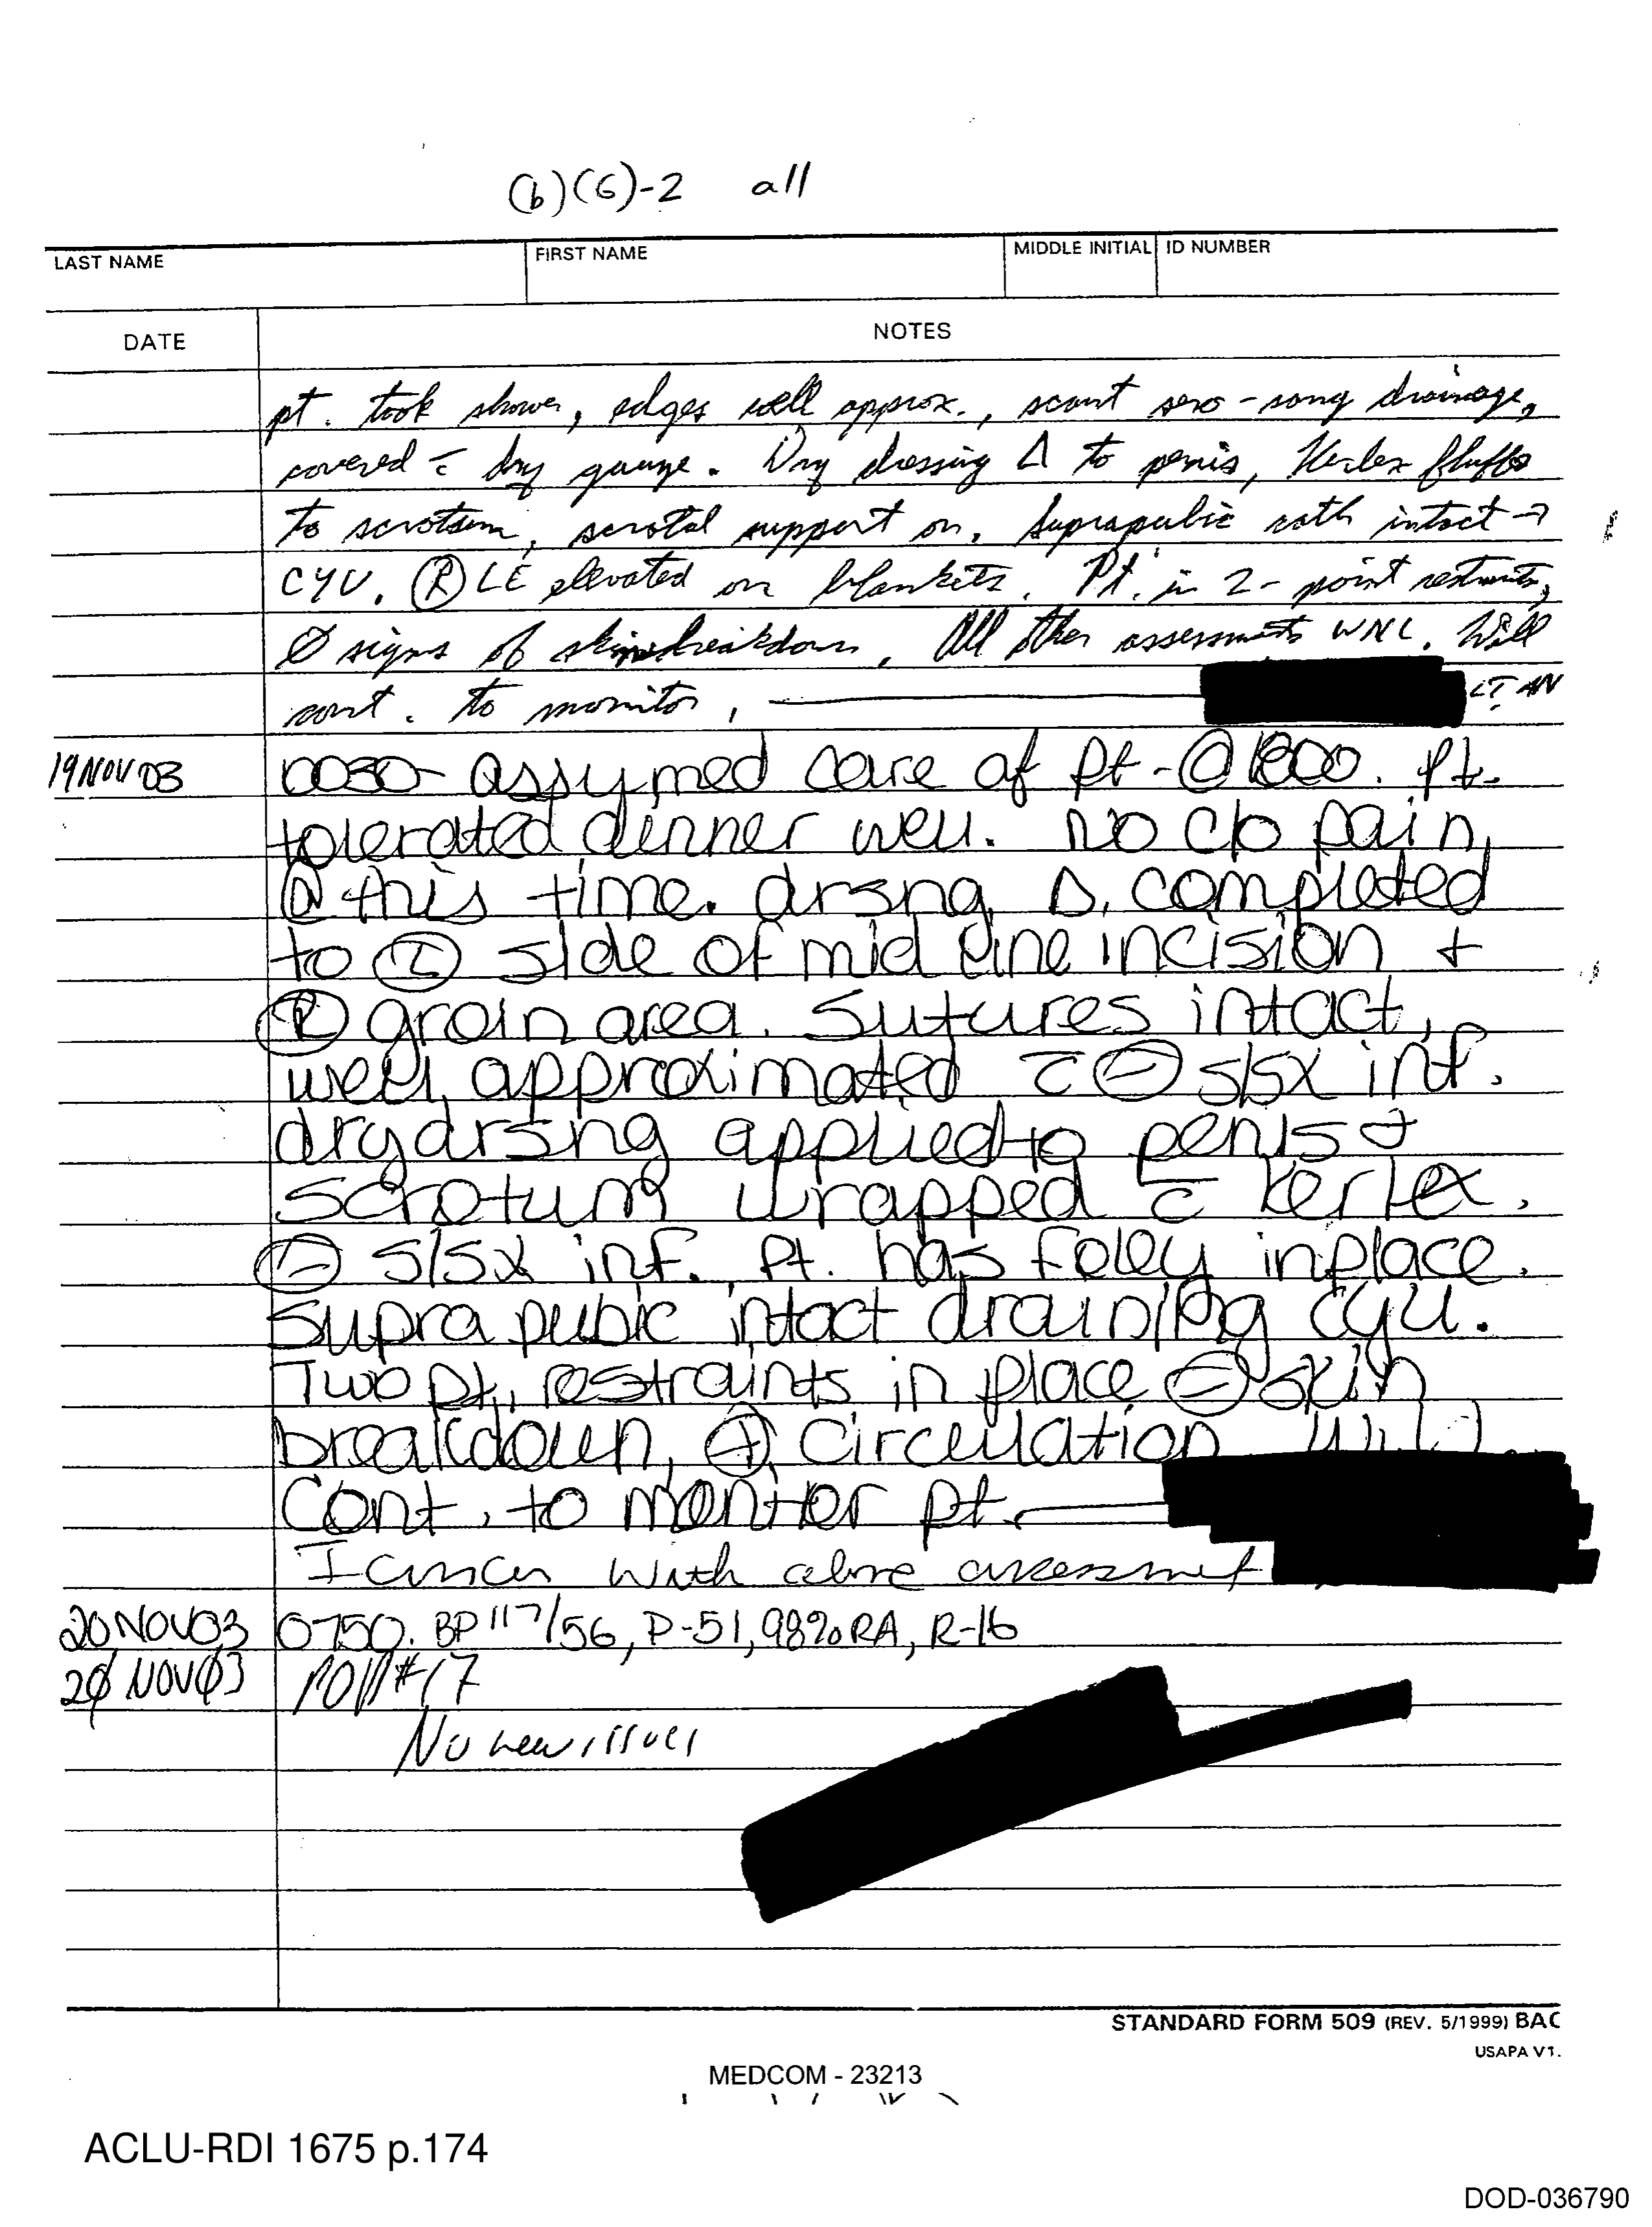 (b)(6)-2 all
LAST NAME FIRST NAME MIDDLE INITIAL ID NUMBER
DATE NOTES
pt. took shower, edges well approx., scant sero-sang drainage,
covered c̄ dry gauze. Dry dressing Δ to penis, Kerlex fluffs
to scrotum, scrotal support on. Suprapubic cath intact →
CYU. Ⓡ LE elevated on blankets. Pt. in 2-point restraints,
Ø signs of skin breakdown. All other assessments WNL. Will
cont. to monitor. LT, AN
19 NOV 03 0030- assumed care of pt-@1800. Pt.
tolerated dinner well. No c/o pain
@ this time. drsng Δ completed
to Ⓛ side of midline incision +
Ⓡ groin area. Sutures intact,
well approximated c̄ ⊖ s/sx inf.
dry drsng applied to penis +
scrotum wrapped c̄ Kerlex.
⊖ s/sx inf. Pt. has Foley in place.
Supra pubic intact draining cyu.
Two pt. restraints in place ⊖ skin
breakdown, ⊕ circulation Will
Cont. to monitor pt.
I concur with above assessment
20 NOV 03 0750. BP 117/56, P-51, 98% RA, R-16
20 NOV 03 #17
No new issues
STANDARD FORM 509 (REV. 5/1999) BAC
USAPA V1.
MEDCOM - 23213
ACLU-RDI 1675 p.174
DOD-036790